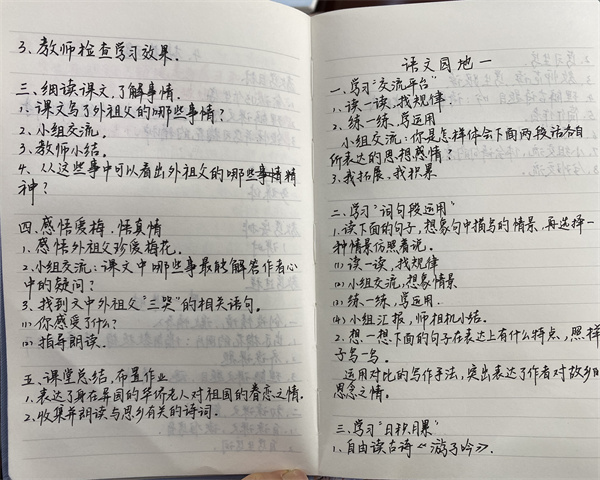 3、教师检查学习效果。
三、细读课文,了解事情。
1、课文写了外祖父的哪些事情?
2、小组交流。
3、教师小结。
4、从这些事中可以看出外祖父的哪些精
神?
四、感悟爱梅,悟真情
1、感悟外祖父珍爱梅花。
2、小组交流:课文中哪些事最能解答作者心
中的疑问?
3、找到文中外祖父“三哭”的相关语句。
(1)你感受了什么?
(2)指导朗读。
五、课堂总结,布置作业
1、表达了身在异国的华侨老人对祖国的眷恋之情。
2、收集并朗读与思乡有关的诗词。
语文园地一
一、学习“交流平台”
1、读一读、找规律。
2、练一练、写运用
小组交流:你是怎样体会下面两段话各自
所表达的思想感情?
3、我拓展、我积累
二、学习“词句段运用”
1、读下面的句子,想象句中描写的情景,再选择一
种情景仿照着说。
(1)读一读,找规律
(2)小组交流,想象情景
(3)练一练、写运用.
(4)小组汇报,师相机小结。
2、想一想,下面的句子在表达上有什么特点,照样
子写一写。
运用对比的写作手法,突出表达了作者对故乡的
思念之情。
三、学习“日积月累”
1、自由读古诗《游子吟》.